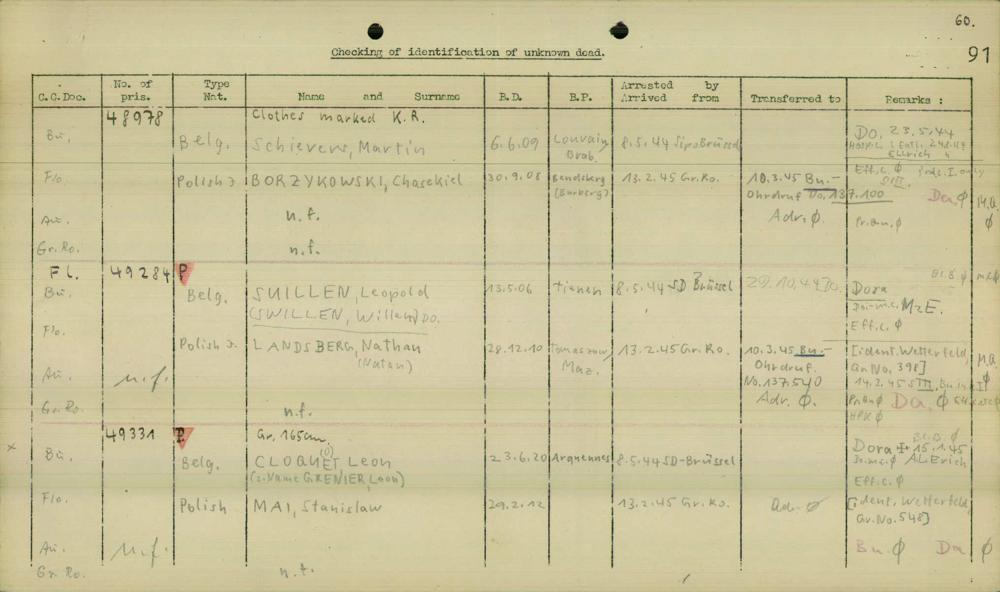 60.
91
Checking of identification of unknown dead.
C.C.Doc. No. of pris. Type Nat. Name and Surname B.D. B.P. Arrested by Arrived from Transferred to Remarks :
48978 Clothes marked K.R.
Bu. Belg. Schievers, Martin 6.6.09 Louvain Brab. 8.5.44 Sipo Brüssel Do. 23.5.44
Ellrich
Eff.c. ∅
Flo. Polish J. BORZYKOWSKI, Chasekiel 30.9.08 Bendsberg 13.2.45 Gr.Ro. 10.3.45 Bu.-
Ohrdruf Do. 137.100 Da ∅ M.a. ∅
Au. n.f. Adr. ∅ Pr.Bu. ∅
Gr.Ro. n.f.
FL. 49284 P
Bu. Belg. SUILLEN, Leopold 13.5.06 Tienen 8.5.44 SD Brüssel 29.10.44 Do. Dora
(SWILLEN, Willem) Do. M2E.
Eff.c. ∅
Flo. Polish J. LANDSBERG, Nathan 28.12.10 Tomaszow Maz. 13.2.45 Gr.Ro. 10.3.45 Bu.- [ident. Wetterfeld,
(Natan) Ohrdruf. Gr.No. 398] M.a. ∅
Au. n.f. No. 137540 14.2.45 SIII, Bu.
Gr.Ro. n.f. Adr. ∅. Pr.Bu ∅ Da. ∅
HPK ∅
49331 P Gr. 165cm.
Bu. Belg. CLOQUET Leon 23.6.20 Arquennes 8.5.44 SD-Brüssel Dora + 15.1.45
(2. Name GRENIER, Leon) Al. Erich
Eff.c. ∅
Flo. Polish MAI, Stanislaw 29.2.12 13.2.45 Gr.Ro. Ad. ∅ [ident. Wetterfeld,
Gr.No. 548]
Au. n.f. Bu. ∅ Da ∅
Gr.Ro. n.f.